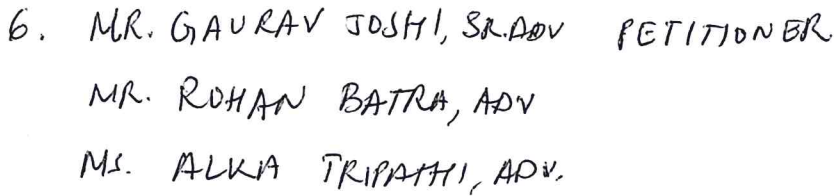 6. MR. GAURAV JOSHI, SR.ADV PETITIONER
MR. ROHAN BATRA, ADV
MS. ALKA TRIPATHI, ADV.